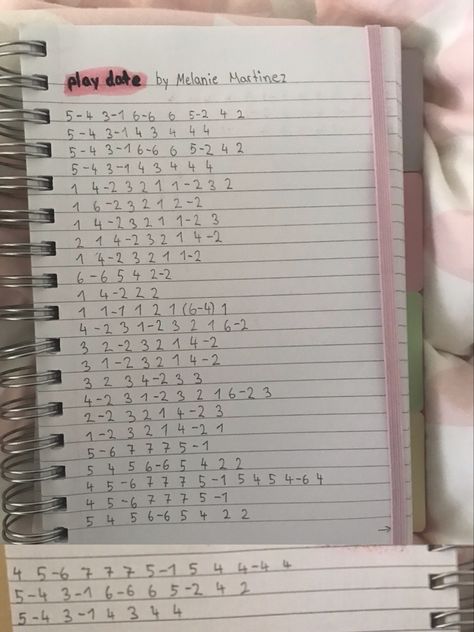 play date by Melanie Martinez
5-4 3-1 6-6 6 5-2 4 2
5-4 3-1 4 3 4 4 4
5-4 3-1 6-6 6 5-2 4 2
5-4 3-1 4 3 4 4 4
1 4-2 3 2 1 1-2 3 2
1 6-2 3 2 1 2-2
1 4-2 3 2 1 1-2 3
2 1 4-2 3 2 1 4-2
1 4-2 3 2 1 1-2
6-6 5 4 2-2
1 4-2 2 2
1 1-1 1 2 1 (6-4) 1
4-2 3 1-2 3 2 1 6-2
3 2-2 3 2 1 4-2
3 1-2 3 2 1 4-2
3 2 3 4-2 3 3
4-2 3 1-2 3 2 1 6-2 3
2-2 3 2 1 4-2 3
1-2 3 2 1 4-2 1
5-6 7 7 7 5-1
5 4 5 6-6 5 4 2 2
4 5-6 7 7 7 5-1 5 4 5 4-6 4
4 5-6 7 7 7 5-1
5 4 5 6-6 5 4 2 2
→
4 5-6 7 7 7 5-1 5 4 4-4 4
5-4 3-1 6-6 6 5-2 4 2
5-4 3-1 4 3 4 4